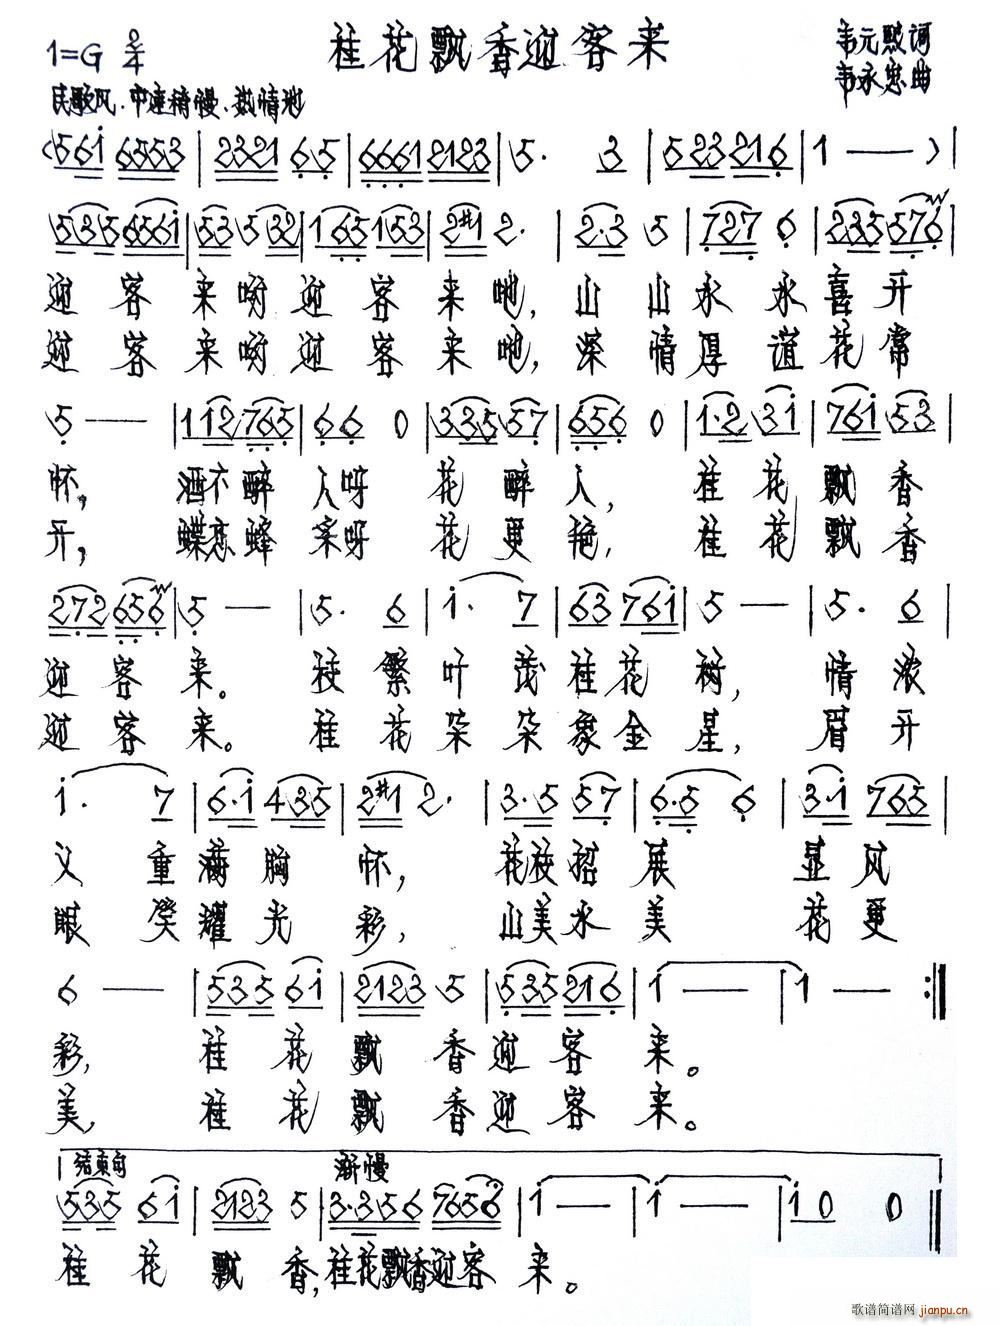 桂花飘香迎客来
1=G 2/4
韦元 词
韦永忠 曲
民歌风、中速稍慢、热情地
(561 6553 | 2321 65 | 6661 2123 | 5. 3 | 523216 | 1 — )
535 6561 | 53 532 | 165 153 | 2#1 2. | 2.3 5 | 727 6 | 2355576
迎客来哟迎客来吔,山山水水喜开
迎客来哟迎客来吔,深情厚谊花常
5 — | 112765 | 66 0 | 335 57 | 656 0 | 1.2 31 | 761 53
怀,酒不醉人呀花醉人,桂花飘香
开,蝶恋蜂采呀花更艳,桂花飘香
272 656 | 5 — | 5. 6 | 1. 7 | 63 761 | 5 — | 5. 6
迎客来。枝繁叶茂桂花树,情浓
迎客来。桂花朵朵象金星,眉开
1. 7 | 6.1 435 | 2#1 2. | 3.5 57 | 6.5 6 | 3.1 765
义重满胸怀,花枝招展显风
眼笑耀光彩,山美水美花更
6 — | 535 61 | 2123 5 | 535 216 | 1 — | 1 — :‖
彩,桂花飘香迎客来。
美,桂花飘香迎客来。
结束句 渐慢
535 61 | 2123 5 | 3.356 7656 | 1 — | 1 — | 10 0 ‖
桂花飘香,桂花飘香迎客来。
歌谱简谱网 jianpu.cn